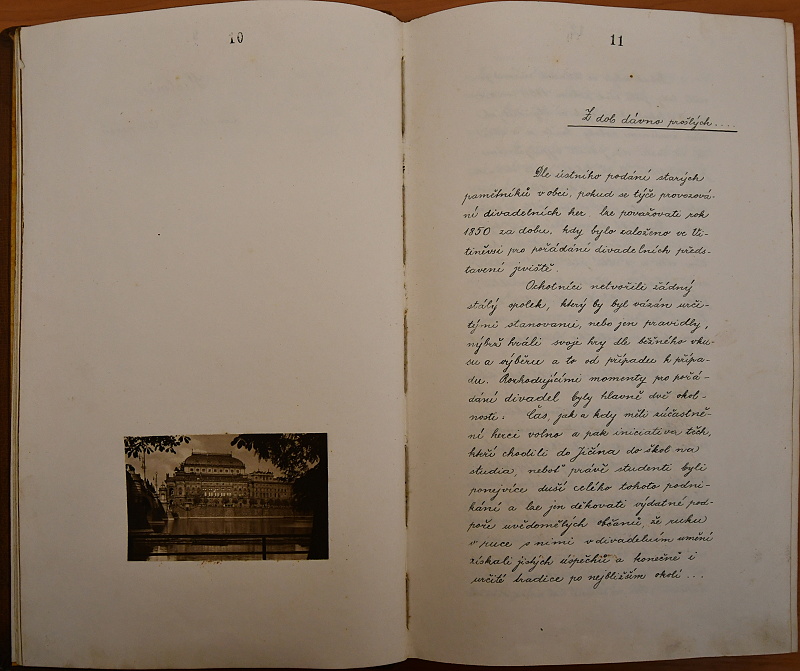 10
11
Z dob dávno prošlých....
Dle ústního podání starých
pamětníků v obci, pokud se týče provozová-
ní divadelních her, lze považovati rok
1850 za dobu, kdy bylo založeno ve Vi-
tiněvsi pro pořádání divadelních před-
stavení jeviště.
Ochotníci netvořili žádný
stálý spolek, který by byl vázán urči-
tými stanovami, nebo jen pravidly,
nýbrž hráli svoje hry dle běžného vku-
su a výběru a to od případu k přípa-
du. Rozhodujícími momenty pro pořá-
dání divadel byly hlavně dvě okol-
nosti: Čas, jak a kdy měli súčastně-
ní herci volno a pak iniciativa těch,
kteří chodili do Jičína do škol na
studia, neboť právě studenti byli
ponejvíce duší celého tohoto podni-
kání a lze jen děkovati výdatné pod-
poře uvědomělých občanů, že ruku
v ruce s nimi v divadelním umění
získali jistých úspěchů a konečně i
určité tradice po nejbližším okolí...